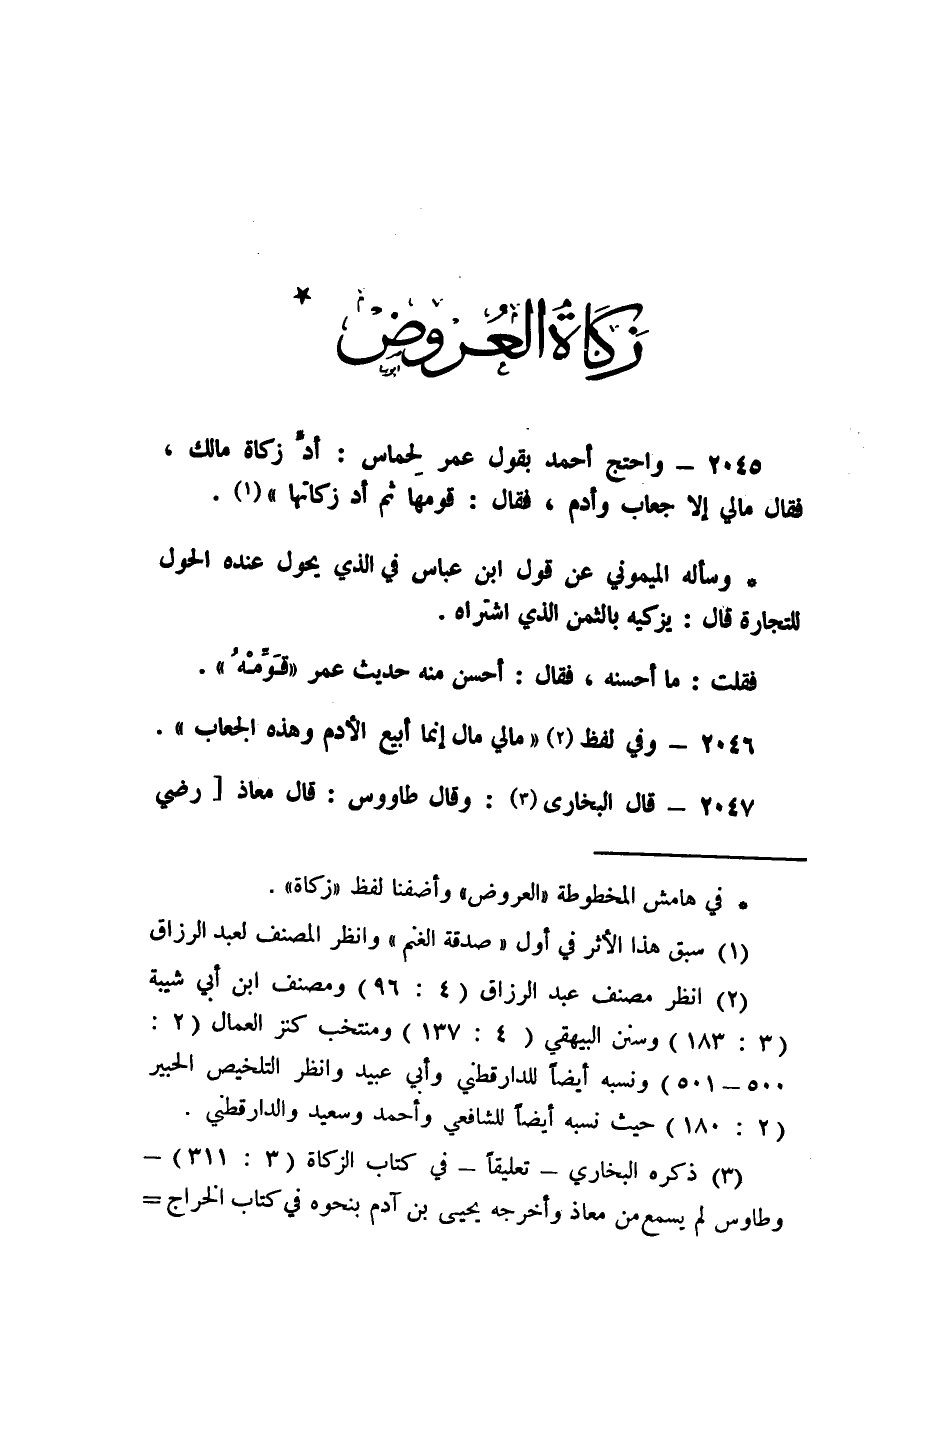 زكاة العروض *
٢٠٤٥ ــ واحتج أحمد بقول عمر لِحماس : أدِّ زكاة مالك ،
فقال مالي إلا جعاب وأدم ، فقال : قومها ثم أد زكاتها » (١) .
* وسأله الميموني عن قول ابن عباس في الذي يحول عنده الحول
للتجارة قال : يزكيه بالثمن الذي اشتراه .
فقلت : ما أحسنه ، فقال : أحسن منه حديث عمر «قَوِّمْهُ» .
٢٠٤٦ ــ وفي لفظ (٢) « مالي مال إنما أبيع الأدم وهذه الجعاب » .
٢٠٤٧ ــ قال البخارى (٣) : وقال طاووس : قال معاذ [ رضي
* في هامش المخطوطة «العروض» وأضفنا لفظ «زكاة» .
(١) سبق هذا الأثر في أول « صدقة الغنم » وانظر المصنف لعبد الرزاق
(٢) انظر مصنف عبد الرزاق ( ٤ : ٩٦ ) ومصنف ابن أبي شيبة
( ٣ : ١٨٣ ) وسنن البيهقي ( ٤ : ١٣٧ ) ومنتخب كنز العمال ( ٢ :
٥٠٠ ــ ٥٠١ ) ونسبه أيضاً للدارقطني وأبي عبيد وانظر التلخيص الحبير
( ٢ : ١٨٠ ) حيث نسبه أيضاً للشافعي وأحمد وسعيد والدارقطني .
(٣) ذكره البخاري ــ تعليقاً ــ في كتاب الزكاة ( ٣ : ٣١١ ) ــ
وطاوس لم يسمع من معاذ وأخرجه يحيى بن آدم بنحوه في كتاب الخراج =